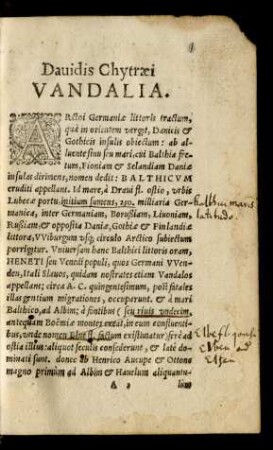 Dauidis Chytræi
VANDALIA.
ARctoi Germaniæ littoris tractum,
quà in orientem vergit, Danicis &
Gothicis insulis obiectum: ab al-
luente sinu seu mari, cui Balthia fre-
tum, Fioniam & Selandiam Daniæ
insulas dirimens, nomen dedit: BALTHICVM
eruditi appellant. Id mare, à Draui fl. ostio, vrbis
Lubecæ portu, initium sumens, 250. milliaria Ger-
manica, inter Germaniam, Borussiam, Liuoniam,
Russiam, & opposita Daniæ, Gothiæ & Finlandiæ
littora, VViburgum vsq; circulo Arctico subiectum
porrigitur. Vniuersam hanc Balthici littoris oram,
HENETI seu Venedi populi, quos Germani VVen-
den, Itali Slauos, quidam nostrates etiam Vandalos
appellant; circa A. C. quingentesimum, post fatales
illas gentium migrationes, occuparunt. & à mari
Balthico, ad Albim; à fontibus (seu riuis vndecim,
antequam Boëmiæ montes exeat, in eum confluenti-
bus, vnde nomen Elbe fl. factum existimatur) ferè ad
ostia illius: aliquot seculis consederunt, & latè do-
minati sunt. donec ab Henrico Aucupe & Ottone
magno primùm ad Albin & Hauelum aliquantu-
A 2
lum
latitudo.